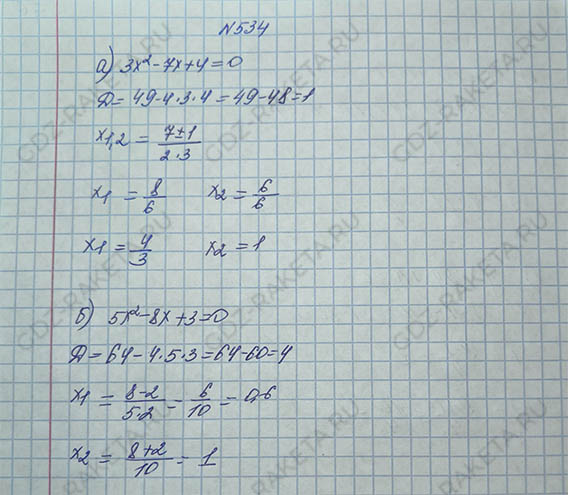 N534
а) 3x² - 7x + 4 = 0
Д = 49 - 4 · 3 · 4 = 49 - 48 = 1
x1,2 = 7±1 / 2·3
x1 = 8/6 x2 = 6/6
x1 = 4/3 x2 = 1
б) 5x² - 8x + 3 = 0
Д = 64 - 4 · 5 · 3 = 64 - 60 = 4
x1 = 8-2 / 5·2 = 6/10 = 0,6
x2 = 8+2 / 10 = 1
GDZ-RAKETA.RU
GDZ-RAKETA.RU
GDZ-RAKETA.RU
GDZ-RAKETA.RU
GDZ-RAKETA.RU
GDZ-RAKETA.RU
GDZ-RAKETA.RU
GDZ-RAKETA.RU
GDZ-RAKETA.RU